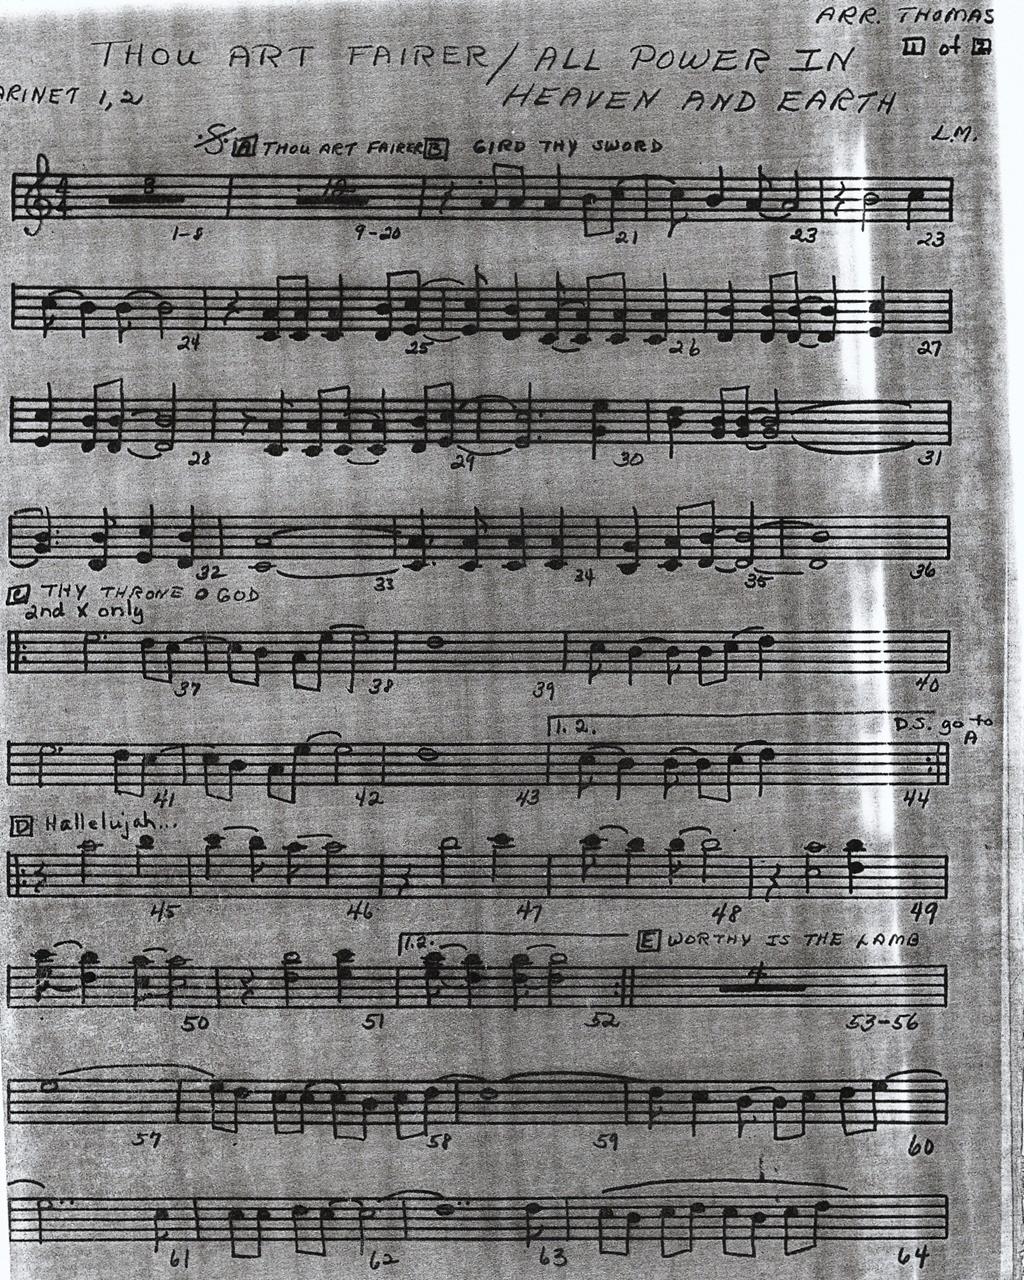 ARR. THOMAS
THOU ART FAIRER/ALL POWER IN
1 of 2
ARINET 1,2
HEAVEN AND EARTH
L.M.
A THOU ART FAIRER B GIRD THY SWORD
4 8 12
4
1-8 9-20 21 23 23
24 25 26 27
28 29 30 31
32 33 34 35 36
C THY THRONE O GOD
2nd X only
37 38 39 40
1. 2. D.S. go to
A
41 42 43 44
D Hallelujah...
45 46 47 48 49
1.2. E WORTHY IS THE LAMB
4
50 51 52 53-56
57 58 59 60
61 62 63 64